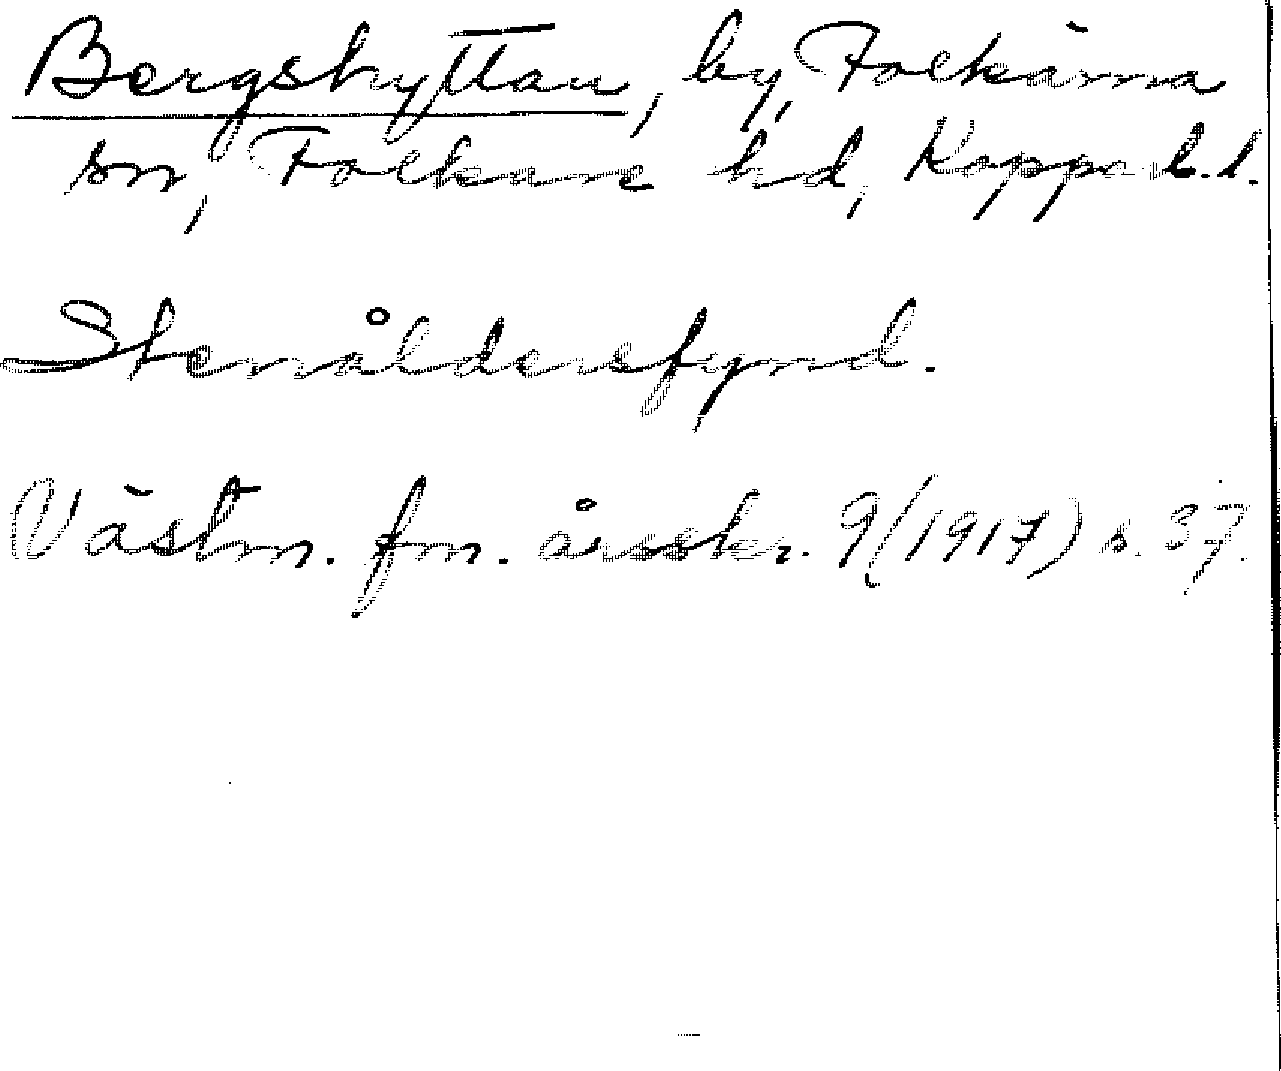 Bergshyttan, by, Folkärna
sn, Folkare hd, Kopparb.l.
Stenåldersfynd.
Västm. fm. årsskr. 9(1917) s. 37.